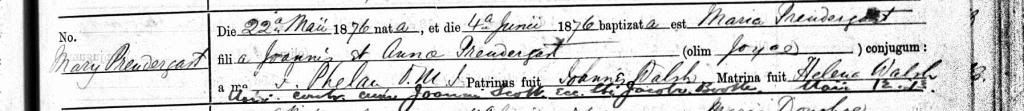 No.
Mary Prendergast
Die 22a Maii 1876 nata, et die 4a Junii 1876 baptizata est Maria Prendergast
filia Joannis & Annæ Prendergast (olim Joyce) conjugum:
a me J. Phelan O.M.I. Patrinus fuit Joannis Walsh Matrina fuit Helena Walsh
Joanne Scott Ecc. Sti Jacobi